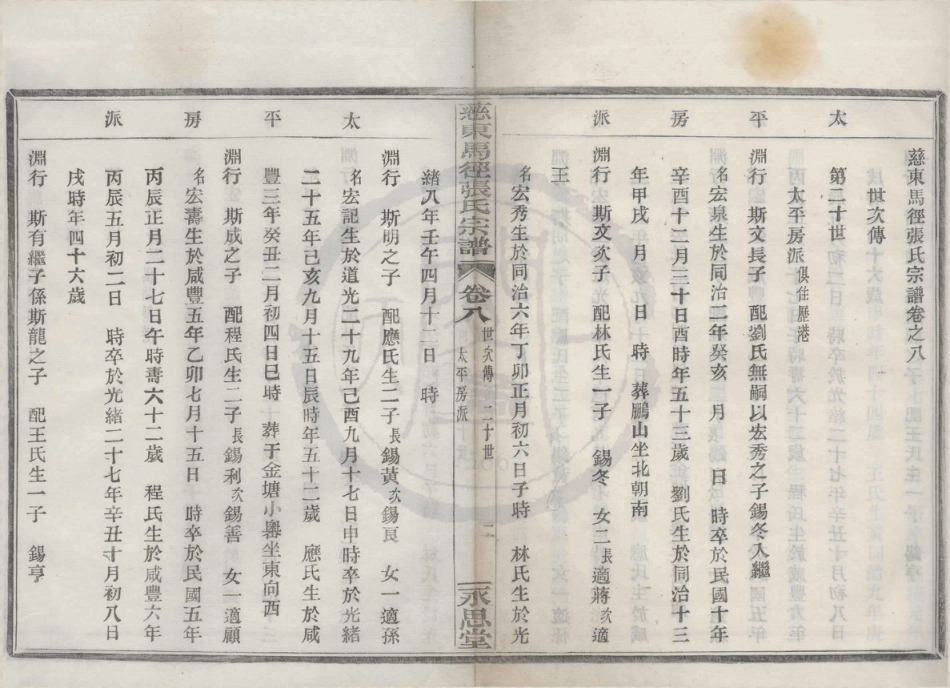 慈東馬徑張氏宗譜卷之八
世次傳
第二十世
太平房派俱住厯港
太平房派
淵行 斯文長子 配劉氏無嗣以宏秀之子錫冬入繼
名宏臯生於同治二年癸亥 月 日 時卒於民國十年
辛酉十二月三十日酉時年五十三歲 劉氏生於同治十三
年甲戌 月 日 時 葬鵬山坐北朝南
淵行 斯文次子 配林氏生一子 錫冬 女二長適蔣次適
王
名宏秀生於同治六年丁卯正月初六日子時 林氏生於光
慈東馬徑張氏宗譜 卷八 世次傳 二十世 太平房派 二 永思堂
緒八年壬午四月十二日 時
太平房派
淵行 斯明之子 配應氏生二子長錫黃次錫良 女一適孫
名宏記生於道光二十九年己酉九月十七日申時卒於光緒
二十五年己亥九月十五日辰時年五十二歲 應氏生於咸
豐三年癸丑二月初四日巳時 葬于金塘小㟁坐東向西
淵行 斯成之子 配程氏生二子長錫利次錫善 女一適顧
名宏壽生於咸豐五年乙卯七月十五日 時卒於民國五年
丙辰正月二十七日午時壽六十二歲 程氏生於咸豐六年
丙辰五月初二日 時卒於光緒二十七年辛丑十月初八日
戌時年四十六歲
淵行 斯有繼子係斯龍之子 配王氏生一子 錫亨